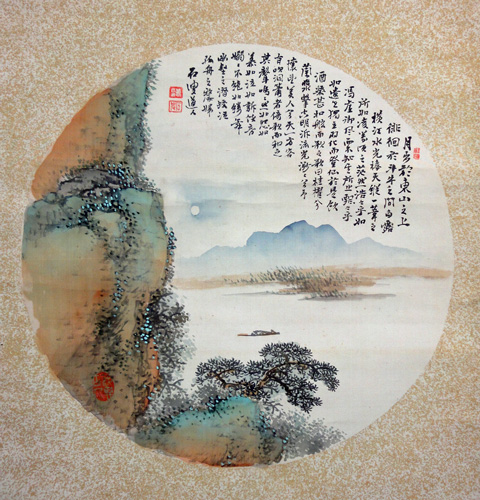 月出於東山之上
徘徊於斗牛之間白露
橫江水光接天縱一葦之
所如凌萬頃之茫然浩々乎如
馮虛御風而不知其所止飄々乎
如遺世獨立羽化而登仙於是飲
酒樂甚扣舷而歌之歌曰桂棹兮
蘭槳擊空明兮泝流光渺々兮予
懷望美人兮天一方客
有吹洞簫者倚歌而和之
其聲嗚々然如怨如
慕如泣如訴餘音
嫋々不絕如縷舞
幽壑之潛蛟泣
孤舟之嫠婦
石雲道人